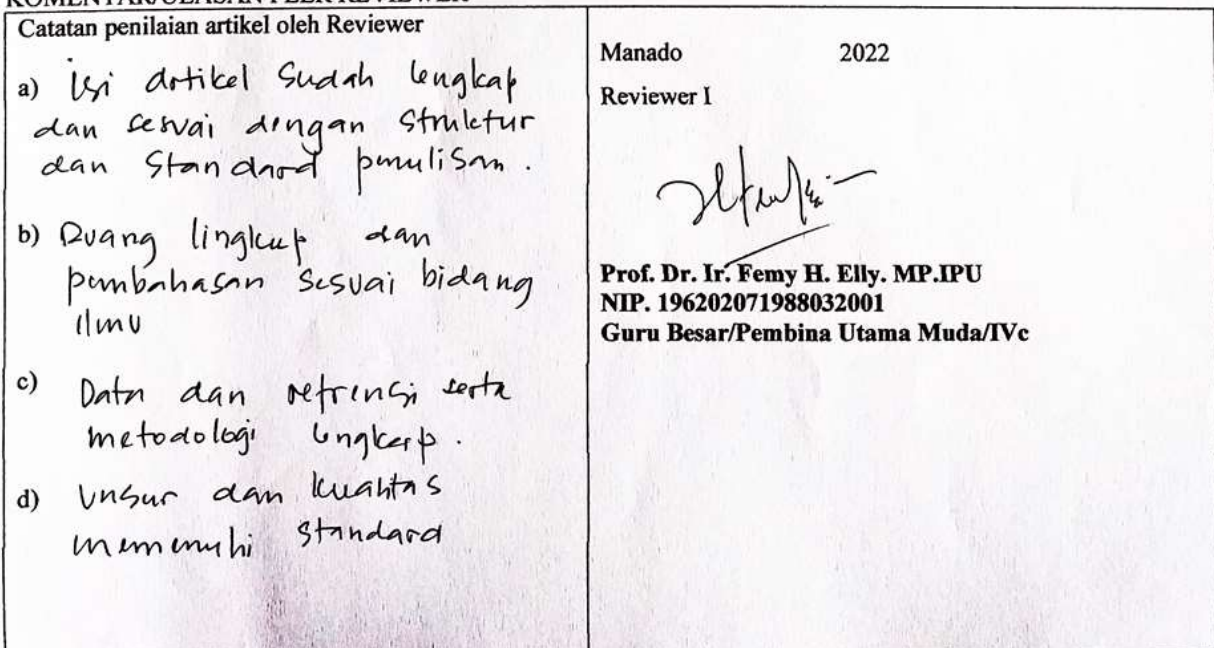 KOMENTAR/ULASAN PEER REVIEWER
Catatan penilaian artikel oleh Reviewer
a) Isi artikel Sudah lengkap
dan sesuai dengan Struktur
dan Standard penulisan.
b) Ruang lingkup dan
pembahasan Sesuai bidang
ilmu
c) Data dan refrensi serta
metodologi lengkap.
d) Unsur dan kualitas
memenuhi Standard
Manado 2022
Reviewer I
Prof. Dr. Ir. Femy H. Elly. MP.IPU
NIP. 196202071988032001
Guru Besar/Pembina Utama Muda/IVc